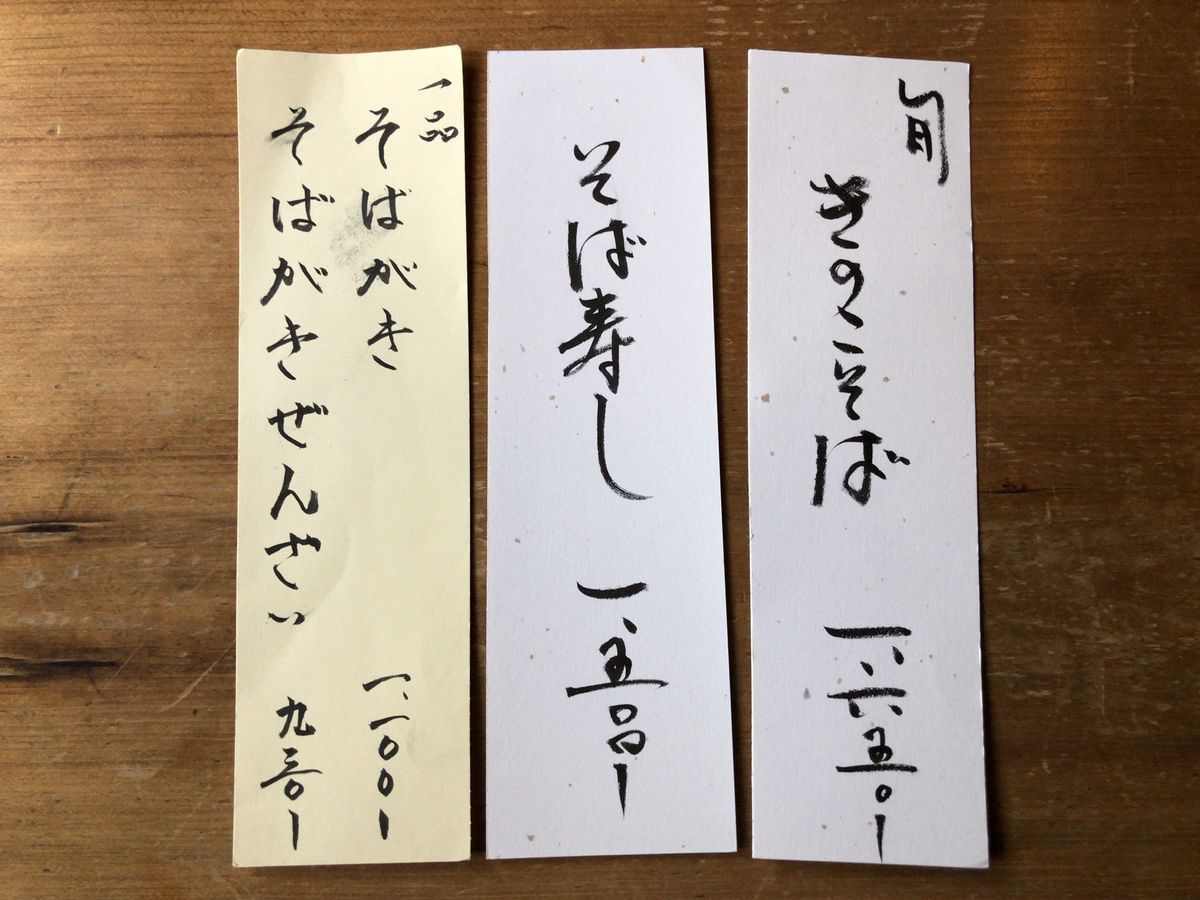 旬
きのこそば 一、六五〇ー
そば寿し 一、五〇〇ー
一品
そばがき 一、一〇〇ー
そばがきぜんざい 九三〇ー